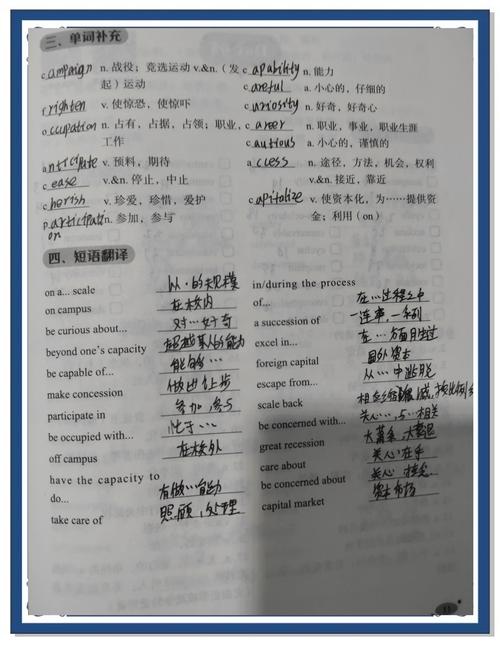 三、单词补充
campaign n. 战役；竞选运动 v.&n.（发起）运动
frighten v. 使惊恐，使惊吓
occupation n. 占有，占据，占领；职业，工作
anticipate v. 预料，期待
cease v.&n. 停止，中止
cherish v. 珍爱，珍惜，爱护
participation n. 参加，参与
capability n. 能力
careful a. 小心的，仔细的
curiosity n. 好奇，好奇心
career n. 职业，事业，职业生涯
cautious a. 小心的，谨慎的
access n. 途径，方法，机会，权利 v.&n. 接近，靠近
capitalize v. 使资本化，为……提供资金；利用（on）
四、短语翻译
on a... scale 以…的规模
on campus 在校内
be curious about... 对…好奇
beyond one's capacity 超越某人的能力
be capable of... 能够…
make concession 做出让步
participate in 参加,参与
be occupied with... 忙于…
off campus 在校外
have the capacity to do... 有做…能力
take care of 照顾,处理
in/during the process of... 在…过程之中
a succession of 一连串,一系列
excel in... 在…方面胜过
foreign capital 国外资本
escape from... 从…中逃脱
scale back 相应缩减,按比例
be concerned with... 关心…,与…相关
great recession 大萧条,大衰退
care about 关心 在乎
be concerned about 关心
capital market 资本市场
11